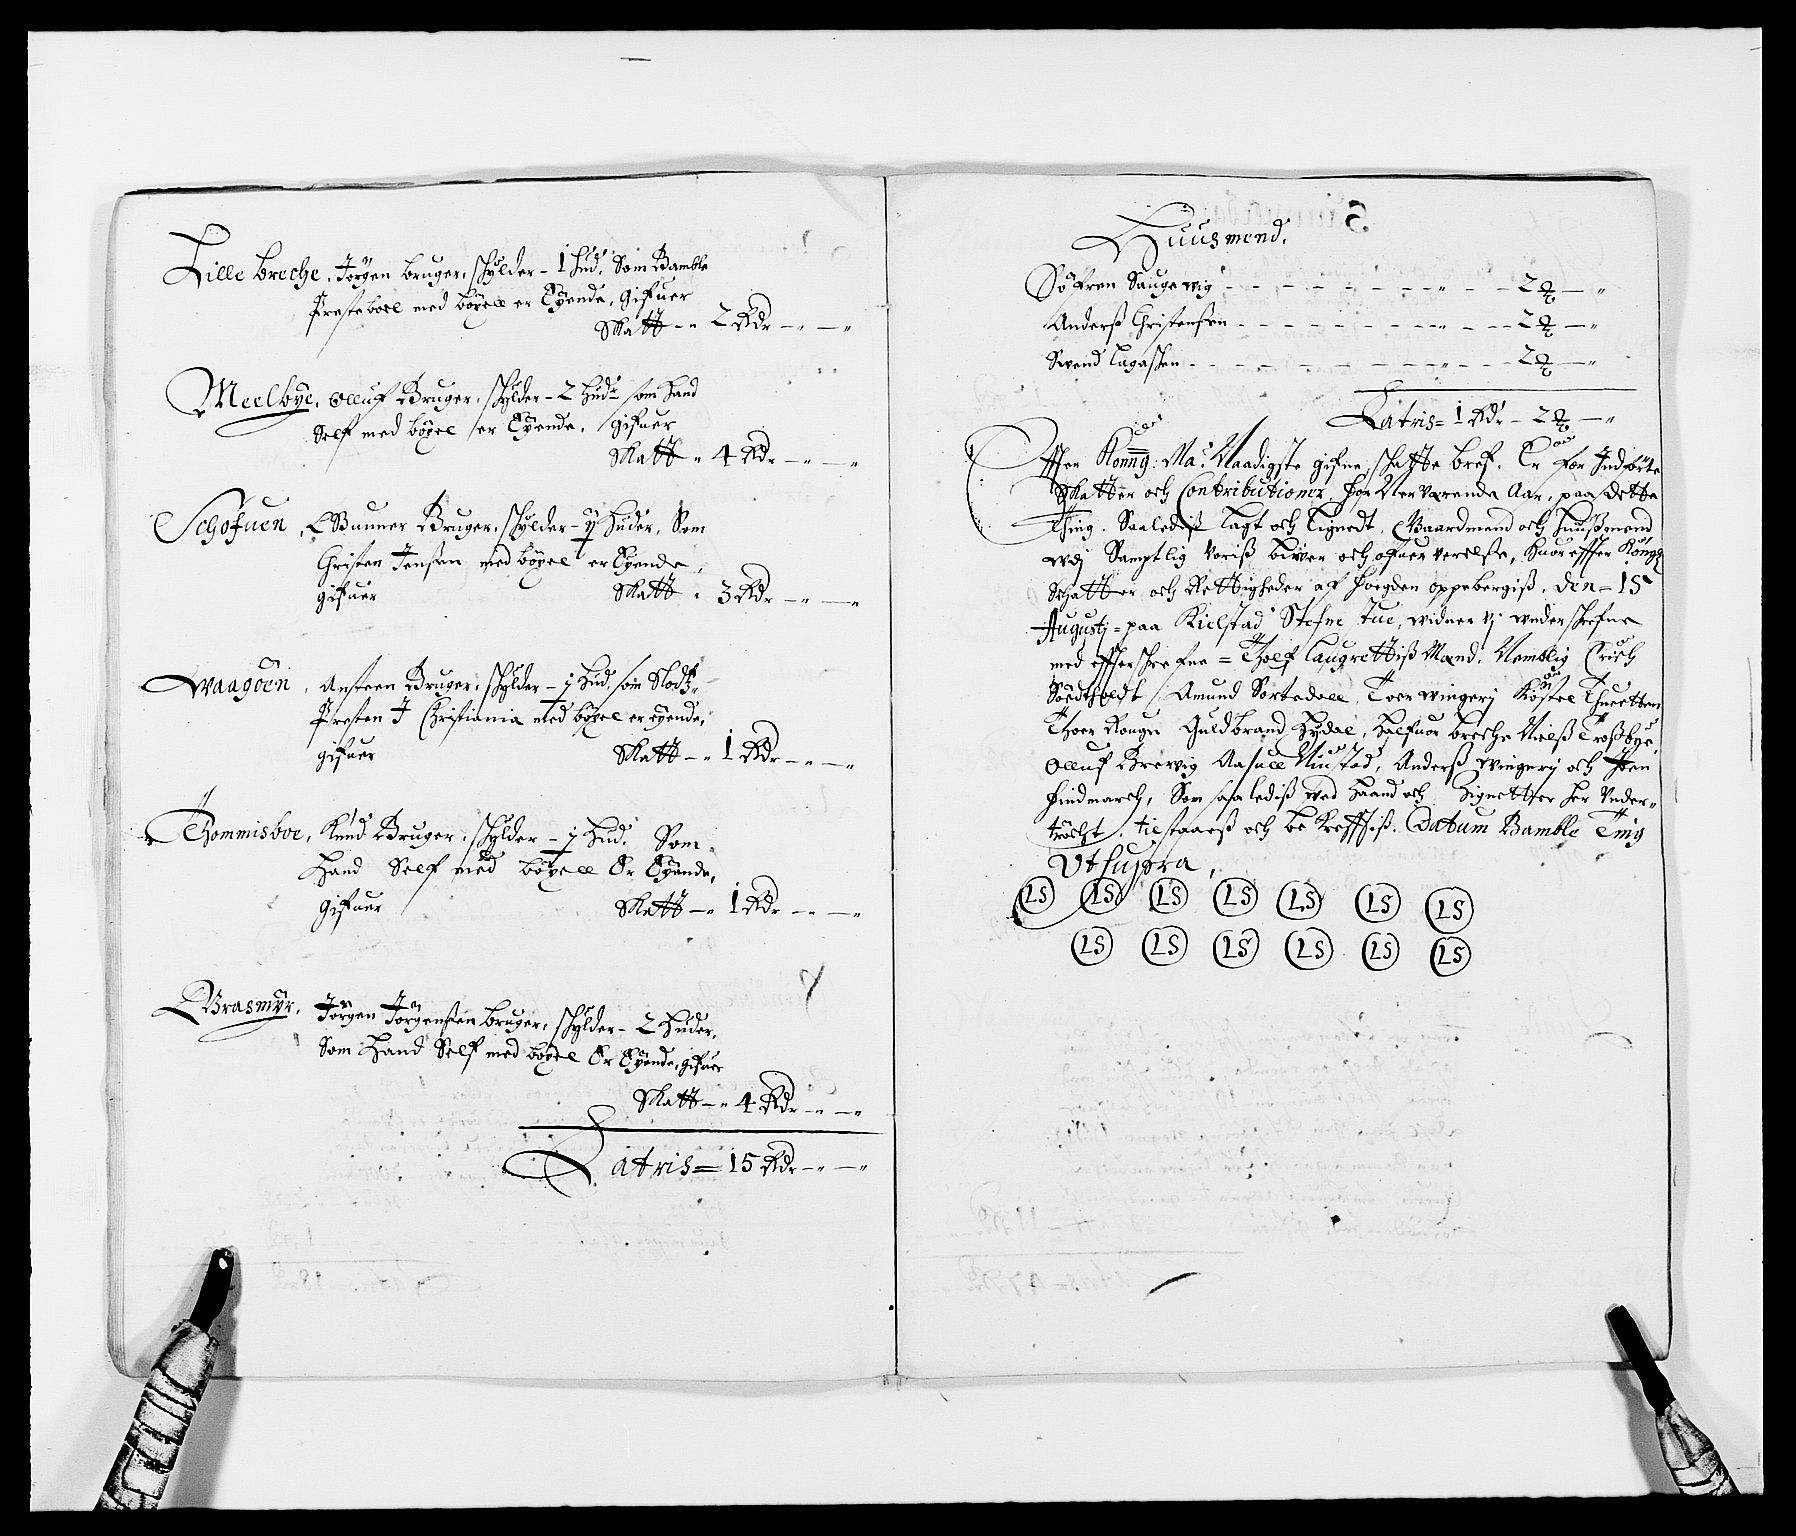 Lille breche, Jörgen bruger, schylder - 1 hud, Som Bamble
Presteboel med böxell er Eyende, gifuer
Skatt - 2 Rdr - " - "
Meelbye, olluf Bruger, schylder - 2 hudr som hand
Self med böxel er Eyende, gifuer
Skatt " 4 Rdr - " - "
Schofuen, Gunner Bruger, schylder - ij huder, Som
Christen Jensen med böxel er Eyende,
gifuer Skatt " 3 Rdr - " - "
Waagöen, Ansteen Bruger, schylder - j Hud, som Slodtz
Presten J Christiania med böxel er eyende,
gifuer Skatt - " 1 Rdr - " - "
Thommisboe, Knud Bruger, schylder - j Hud, Som
Hand Self med böxell Er Eyende,
gifuer Skatt - " 1 Rdr - " - "
Grasmyr, Jörgen Jörgensen bruger, schylder - 2 Huder,
Som Hand Self med böxel Er Eyende, gifuer
Skatt - " 4 Rdr - " - "
Latris = 15 Rdr - " - "
Huusmend,
Söfren Saugevig - - - " - 2 - "
Anderss Christensen - - - " - 2 - "
Svend - - - " - 2 - "
Latris = 1 Rdr - 2 - "
Effter Konng: Ma: Naadigste gifne schatte bref. Er for Indförte
Skatter och Contributioner, for Nerværende Aar, paa dette
Ting, Saalediss lagt och Lignedt, Gaardmend och Huussmend
wdj Samptlig voriss och ofuerverelse, huoreffter Kongl
Schatter och Rettigheder af fougden oppebergiss, den = 15
Augustj = paa Kielstad Stefne stue, widner vj underschrefne
med effterschrefne = Tholf laugrettiss Mænd, Nemblig Erich
Söedtholdt, Amund Sortedall, Toer wingerj
Thoer Rougn Guldbrand Hydal, Halfuor breche Nielss Trossbye,
olluf Brevig Aasuel Niustad, Anderss wingerj och Joen
findmarch, Som saalediss med Haand och Zignetter her under
tröcht, tilstaaess och bekrefftiss. Datum Bamble Ting
Ut supra,
LS LS LS LS LS LS LS
LS LS LS LS LS LS